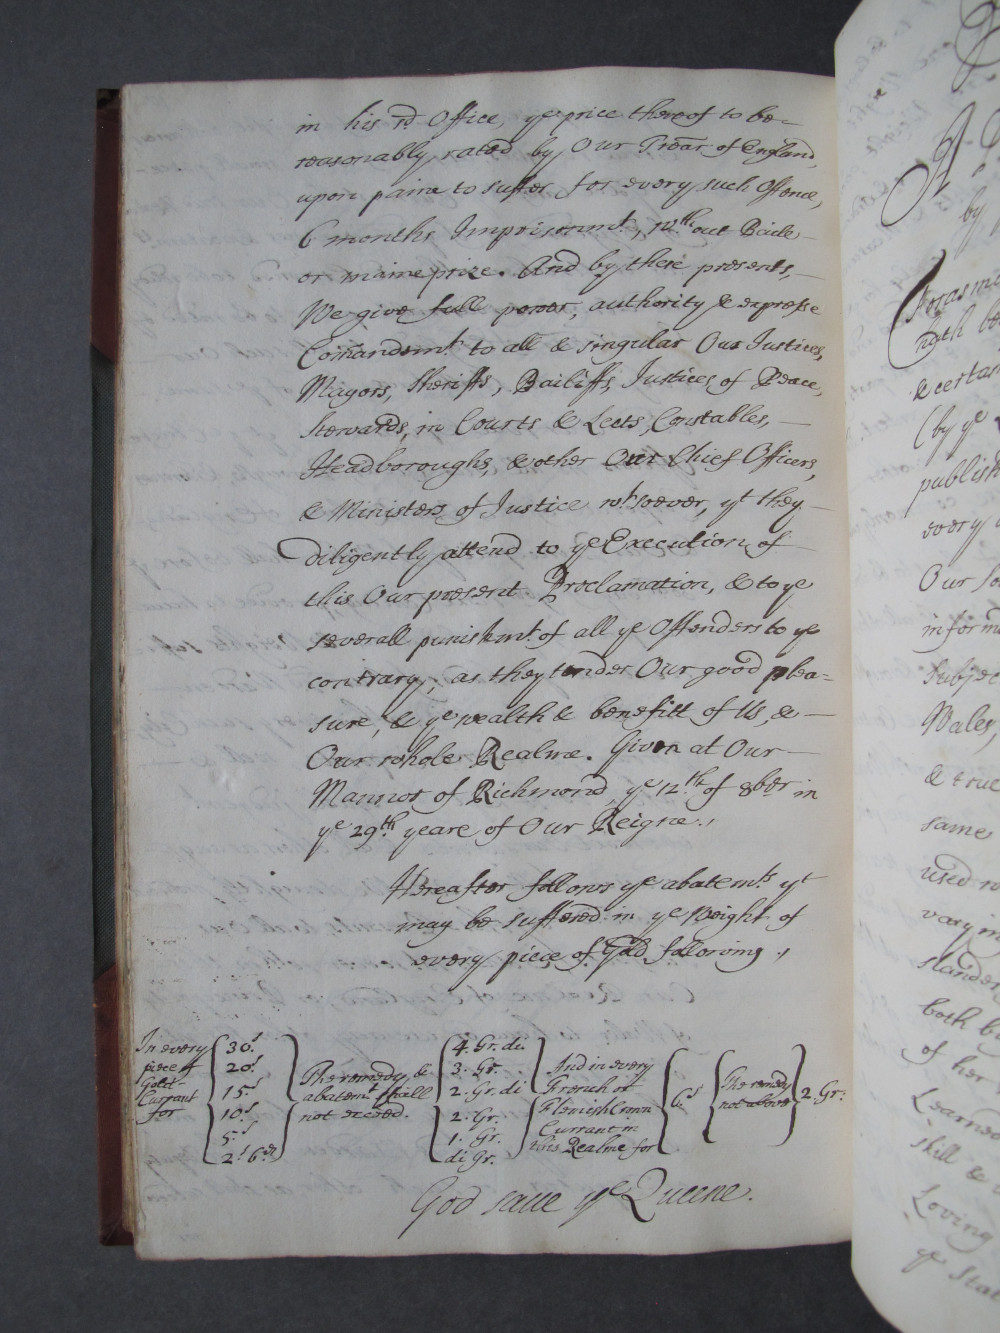 in his sd Office, ye price thereof to be
reasonably rated by Our Trear of England,
upon paine to suffer for every such Offence,
6 months Imprisonmt, wth out Baile
or maineprize. And by these presents,
We give full power, authority & expresse
Comandemt to all & singular Our Justices,
Mayors, Sheriffs, Bailiffs, Justices of Peace,
Stewards, in Courts & Leets, Constables,
Headboroughs, & other Our Chief Officers,
& Ministers of Justice wtsoever, yt they
diligently attend to ye Execution of
this Our present Proclamation, & to ye
severall punishmt of all ye Offenders to ye
contrary, as they tender Our good plea=
sure, & ye wealth & benefitt of Us, &
Our whole Realme. Given at Our
Mannor of Richmond, ye 12th of 8ber in
ye 29th yeare of Our Reigne.
Hereafter follows ye abatemts yt
may be suffered in ye Weight of
every piece of Gold following,
In every
piece of
Gold
Currant
for
30s
20s
15s
10s
5s
2s 6d
The remedy &
abatemt shall
not exceed.
4. Gr. di
3. Gr.
2. Gr. di
2. Gr.
1. Gr.
di Gr.
And in every
French or
Flemish Crown
Currant in
this Realme for
6s
The remedy
not above
2. Gr.
God save ye Queene.
by
Forasmu
& certai
(by ye
publish
every
Our
inform
Subjec
Wales,
& true
same
used
varyin
slander
both b
of her
Learned
skill &
Loving
ye Stat